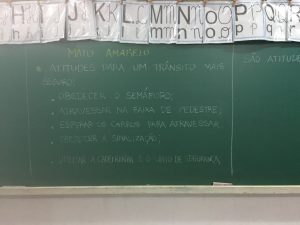 H I J K L M N O P Q
m n o p q
MAIO AMARELO
ATITUDES PARA UM TRÂNSITO MAIS
SEGURO:
- OBEDECER O SEMÁFORO;
- ATRAVESSAR NA FAIXA DE PEDESTRE;
- ESPERAR OS CARROS PARA ATRAVESSAR
- OBEDECER A SINALIZAÇÃO;
- UTILIZAR A CADEIRINHA E O CINTO DE SEGURANÇA;
SÃO ATITUD